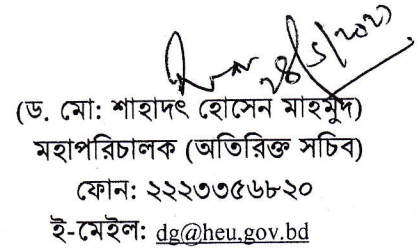 ২৪/৫/২০২১
(ড. মো: শাহাদৎ হোসেন মাহমুদ)
মহাপরিচালক (অতিরিক্ত সচিব)
ফোন: ২২২৩৩৫৬৮২০
ই-মেইল: dg@heu.gov.bd